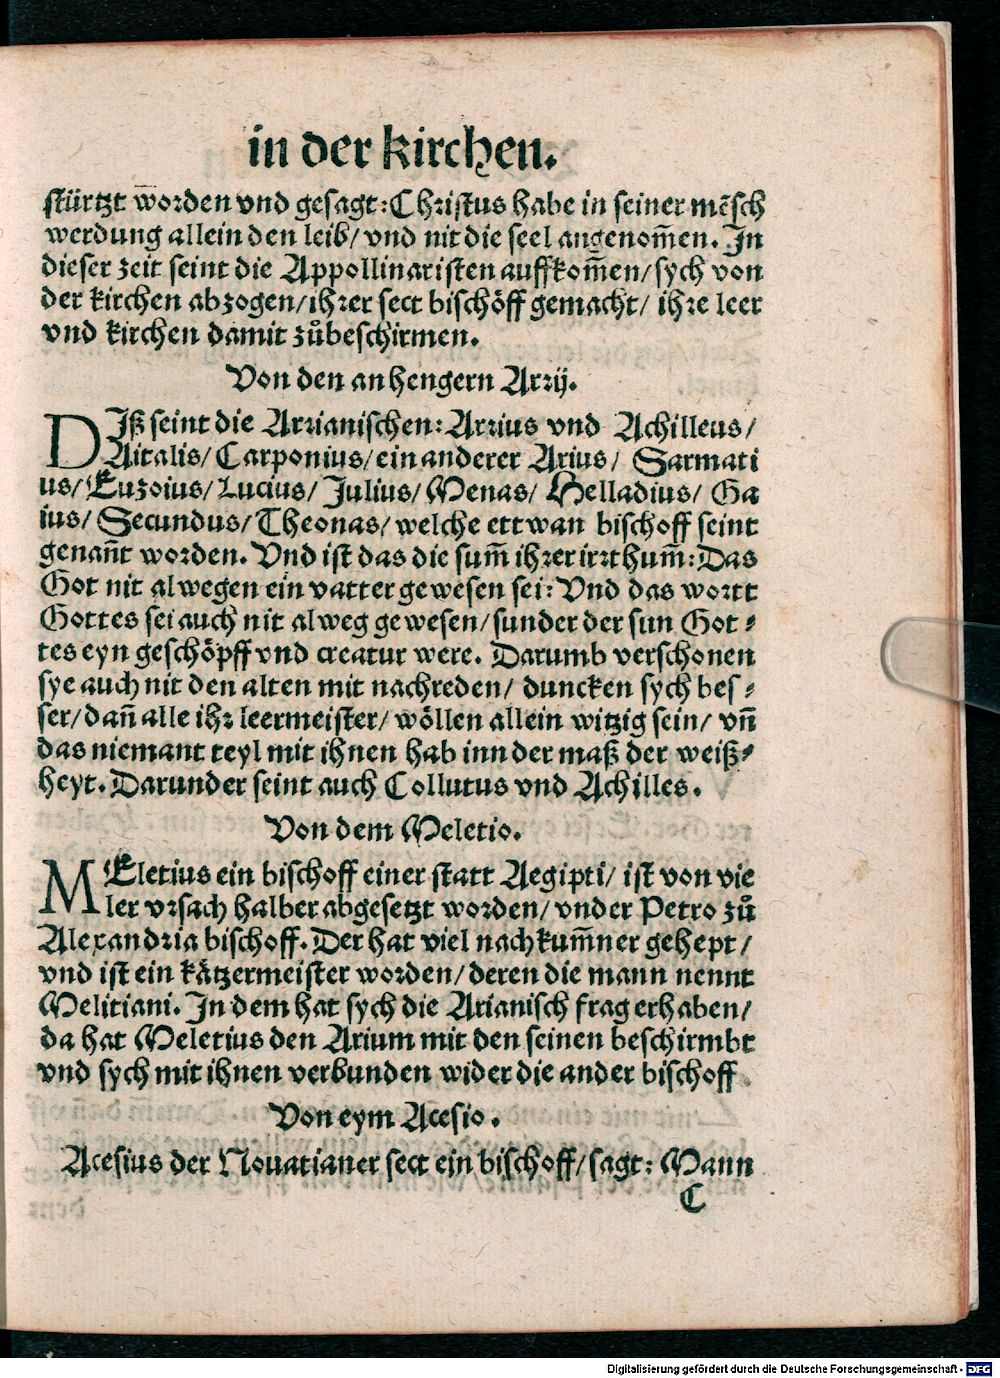 in der kirchen.
stürtzt worden vnd gesagt: Christus habe in seiner mẽsch
werdung allein den leib/ vnd nit die seel angenom̃en. In
dieser zeit seint die Appollinaristen auffkom̃en/ sych von
der kirchen abzogen/ ihrer sect bischöff gemacht/ ihre leer
vnd kirchen damit zůbeschirmen.
Von den anhengern Arrij.
DIß seint die Arrianischen: Arrius vnd Achilleus/
Aitalis/ Carponius/ ein anderer Arius/ Sarmati
us/ Euzoius/ Lucius/ Julius/ Menas/ Helladius/ Ga
ius/ Secundus/ Theonas/ welche ettwan bischoff seint
genañt worden. Vnd ist das die sum̃ ihrer irrthum̃: Das
Got nit alwegen ein vatter gewesen sei: Vnd das wortt
Gottes sei auch nit alweg gewesen/ sunder der sun Got⸗
tes eyn geschöpff vnd creatur were. Darumb verschonen
sye auch nit den alten mit nachreden/ duncken sych bes⸗
ser/ dañ alle ihr leermeister/ wöllen allein witzig sein/ vñ
das niemant teyl mit ihnen hab inn der maß der weiß⸗
heyt. Darunder seint auch Collutus vnd Achilles.
Von dem Meletio.
MEletius ein bischoff einer statt Aegipti/ ist von vie
ler vrsach halber abgesetzt worden/ vnder Petro zů
Alexandria bischoff. Der hat viel nachkum̃ner gehept/
vnd ist ein kätzermeister worden/ deren die mann nennt
Melitiani. In dem hat sych die Arianisch frag erhaben/
da hat Meletius den Arium mit den seinen beschirmbt
vnd sych mit ihnen verbunden wider die ander bischoff.
Von eym Acesio.
Acesius der Nouatianer sect ein bischoff/ sagt: Mann
C
Digitalisierung gefördert durch die Deutsche Forschungsgemeinschaft - DFG